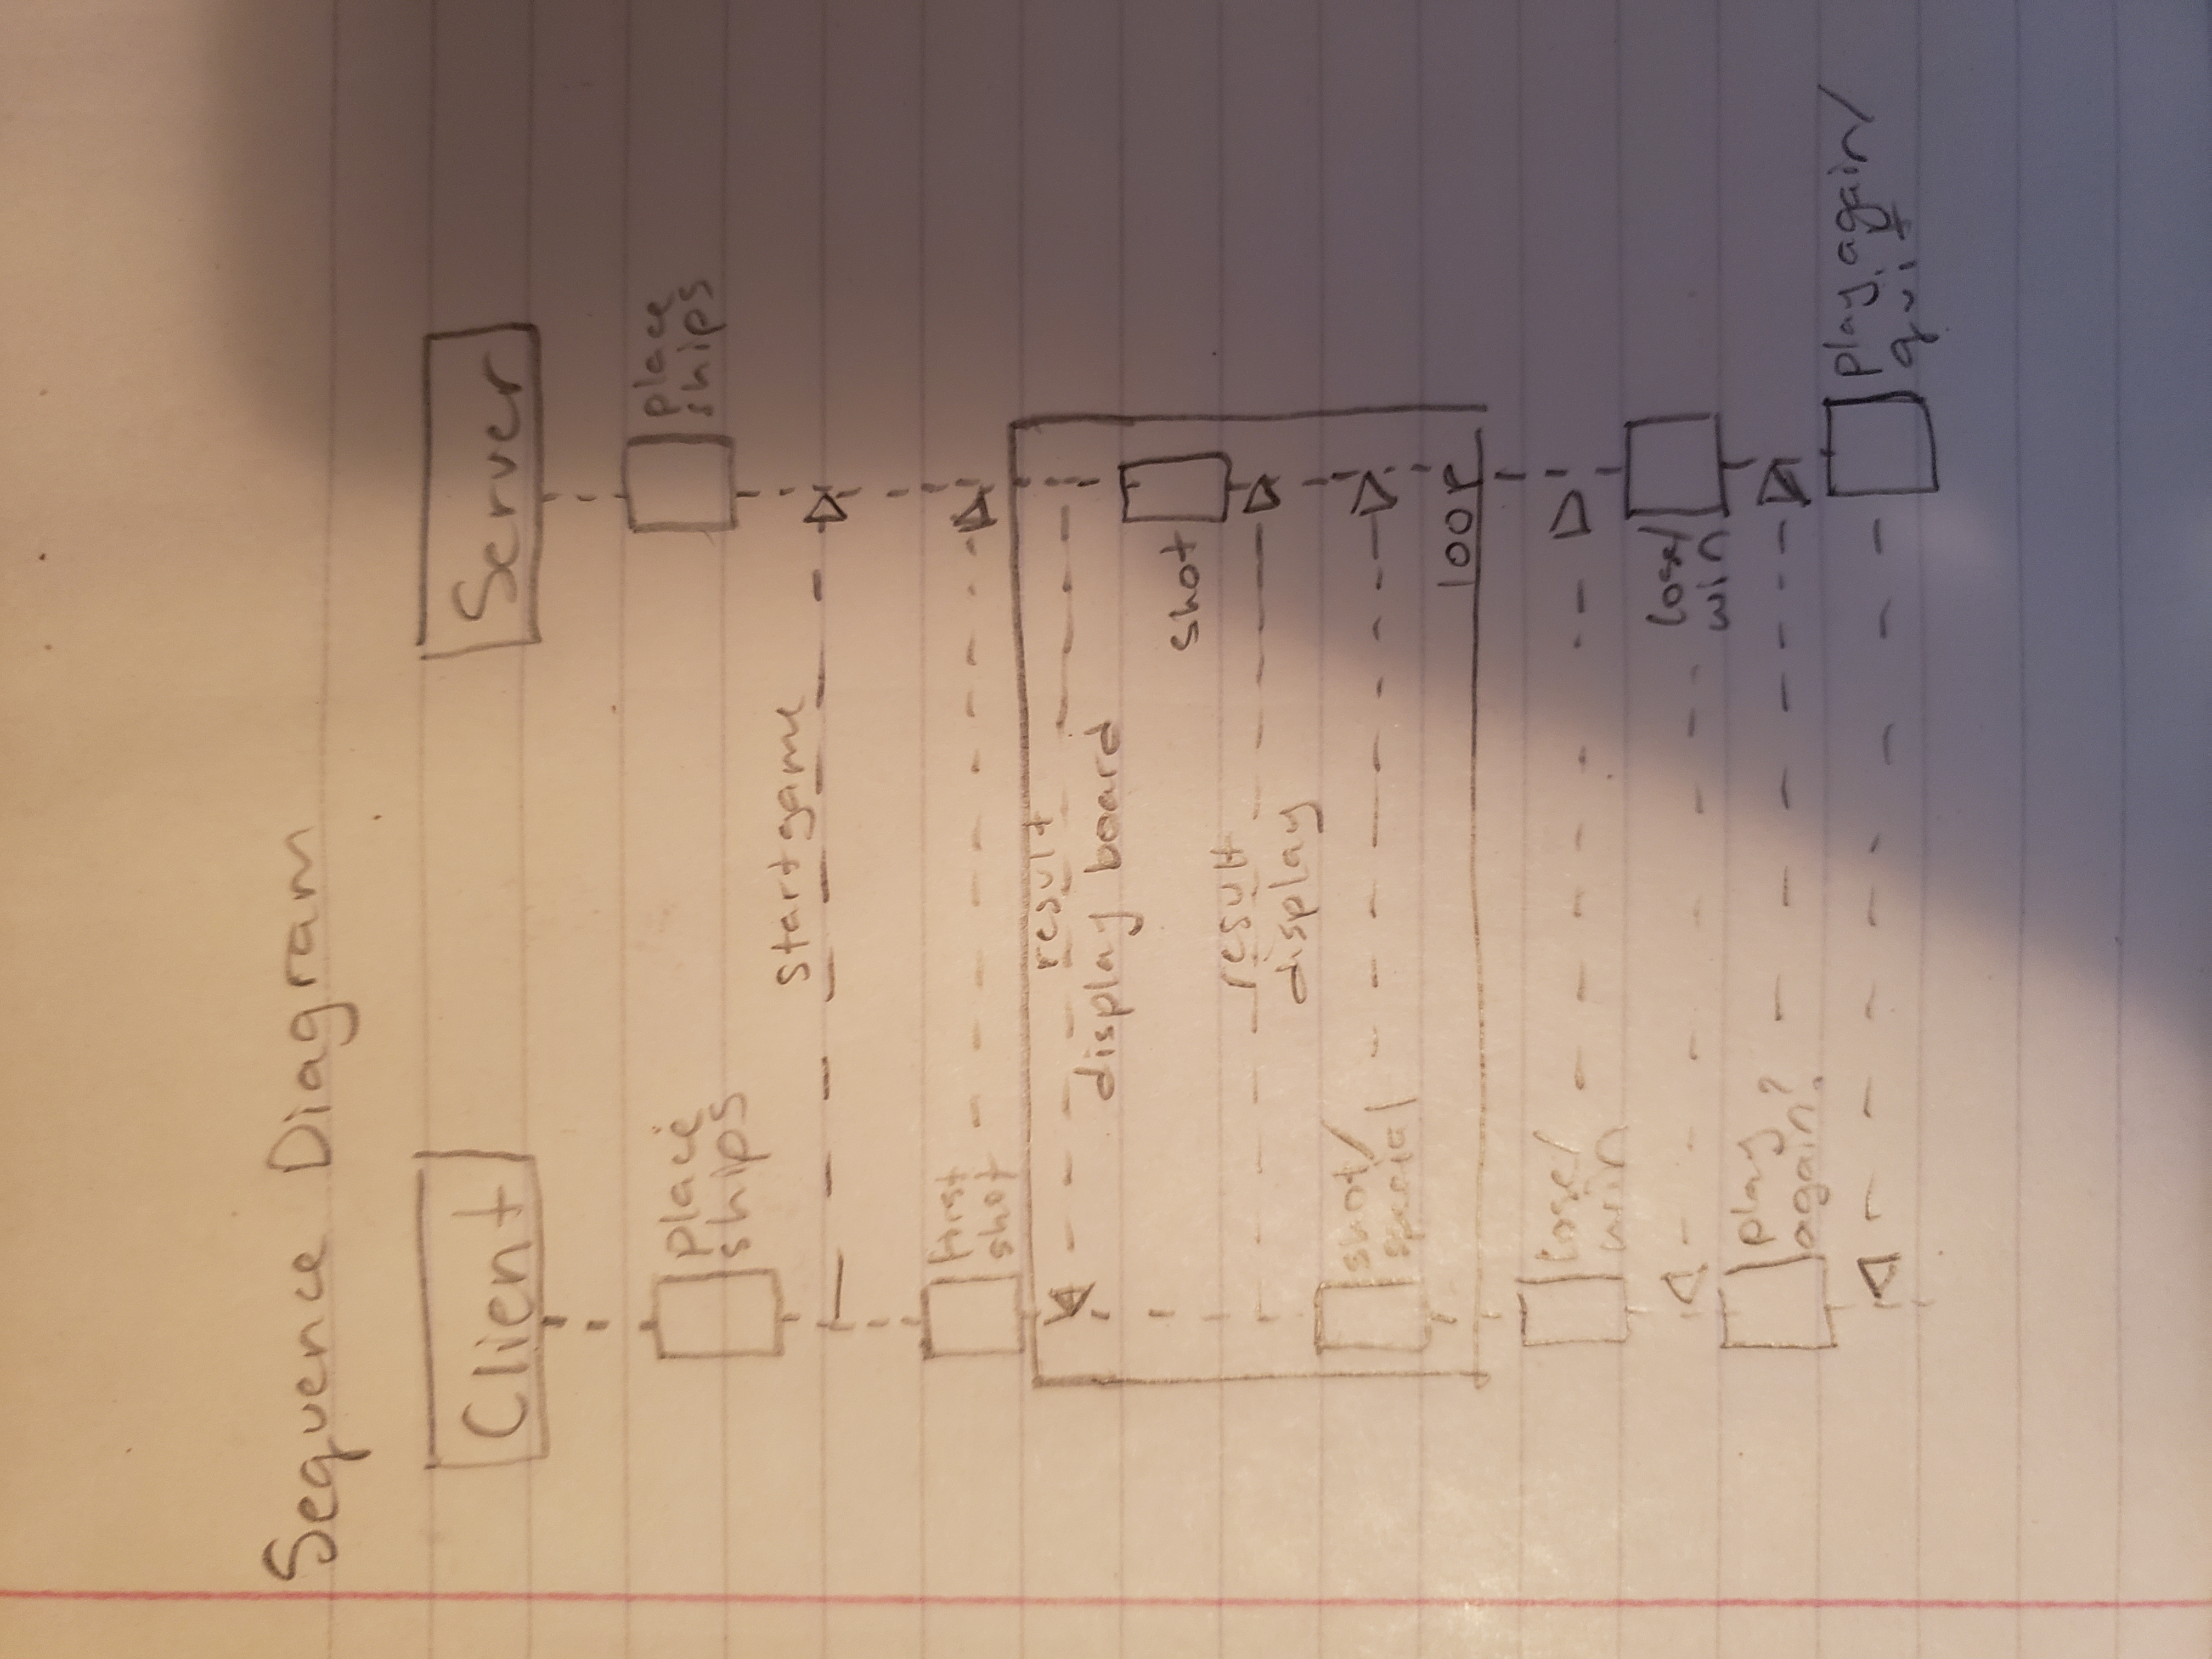 Sequence Diagram
Client
Server
place
ships
place
ships
startgame
first
shot
result
display board
shot
result
display
shot/
special
loop
lose/
win
lose/
win
play
again?
play again/
quit